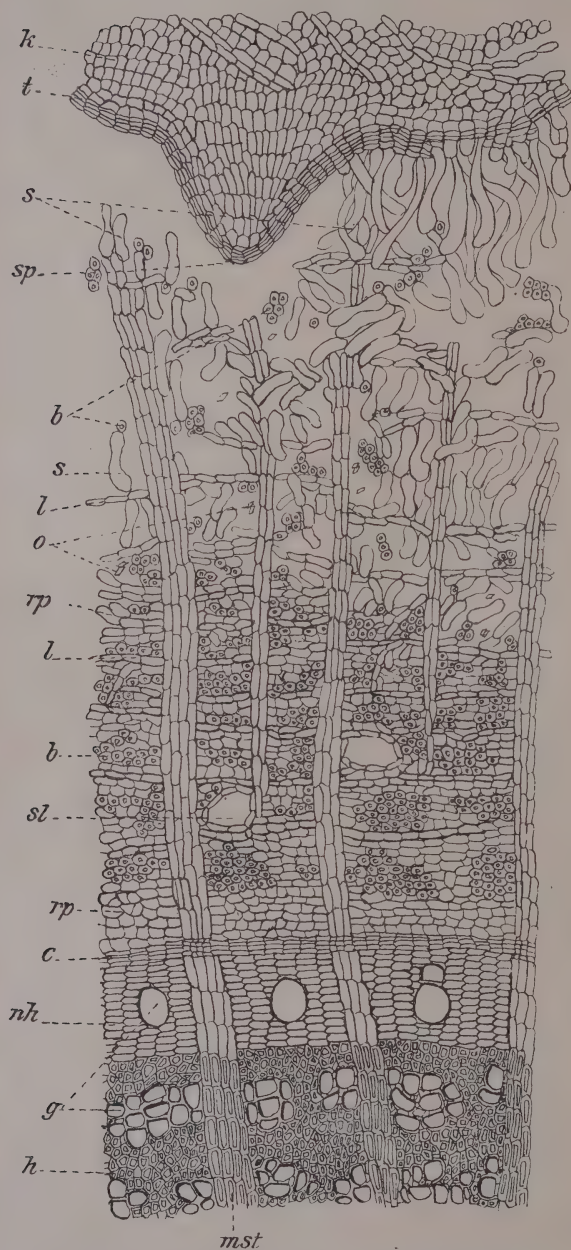 k
t
s
sp
b
s
l
o
rp
l
b
sl
rp
c
nh
g
h
mst